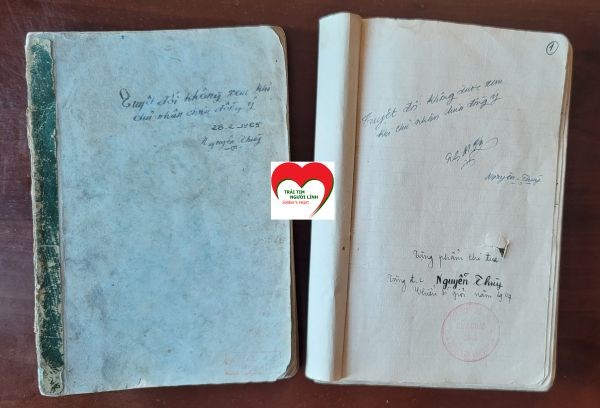 Tuyệt đối không xem khi
chủ nhân chưa đồng ý
28.2.1985
Nguyễn Thúy
TRÁI TIM
NGƯỜI LÍNH
①
Tuyệt đối không được xem
khi chủ nhân chưa đồng ý
Nguyễn Thúy
Tặng phẩm chi tiết
Tặng đ/c Nguyễn Thúy
năm 1979